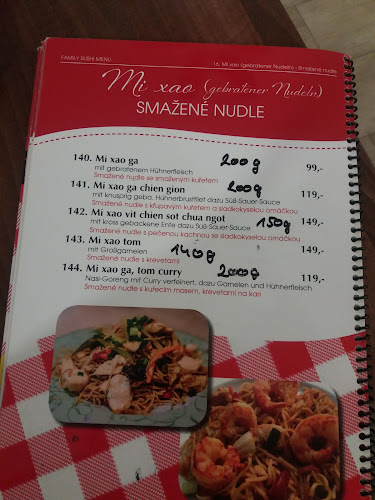 FAMILY SUSHI MENU
16. Mi xao (gebratener Nudeln) - Smažené nudle
Mi xao (gebratener Nudeln)
SMAŽENÉ NUDLE
140. Mi xao ga 200g 99,-
mit gebratenem Hühnerfleisch
Smažené nudle se smaženým kuřetem
141. Mi xao ga chien gion 200g 119,-
mit knusprig geba. Hühnerbrustfilet dazu Süß-Sauer-Sauce
Smažené nudle s křupavým kuřetem a sladkokyselou omáčkou
142. Mi xao vit chien sot chua ngot 150g 149,-
mit kross gebackene Ente dazu Süß-Sauer-Sauce
Smažené nudle s pečenou kachnou se sladkokyselou omáčkou
143. Mi xao tom 140g 149,-
mit Großgarnelen
Smažené nudle s krevetami
144. Mi xao ga, tom curry 200g 119,-
Nasi-Goreng mit Curry verfeinert, dazu Garnelen und Hühnerfleisch
Smažené nudle s kuřecím masem, krevetami na kari